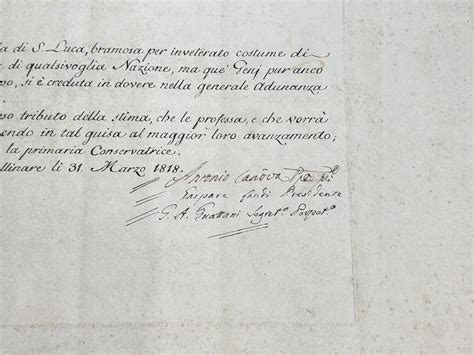 a di S. Luca, bramosa per inveterato costume di
e di qualsivoglia Nazione, ma què Genj pur anco
po, si è creduta in dovere nella generale Adunanza
so tributo della stima, che le professa, e che vorrà
endo in tal guisa al maggior loro avanzamento;
la primaria Conservatrice.
llinare li 31. Marzo 1818.
Antonio Canova
Gaspare Landi Presidente
G. A. Guattani Segret.º Perpet.º